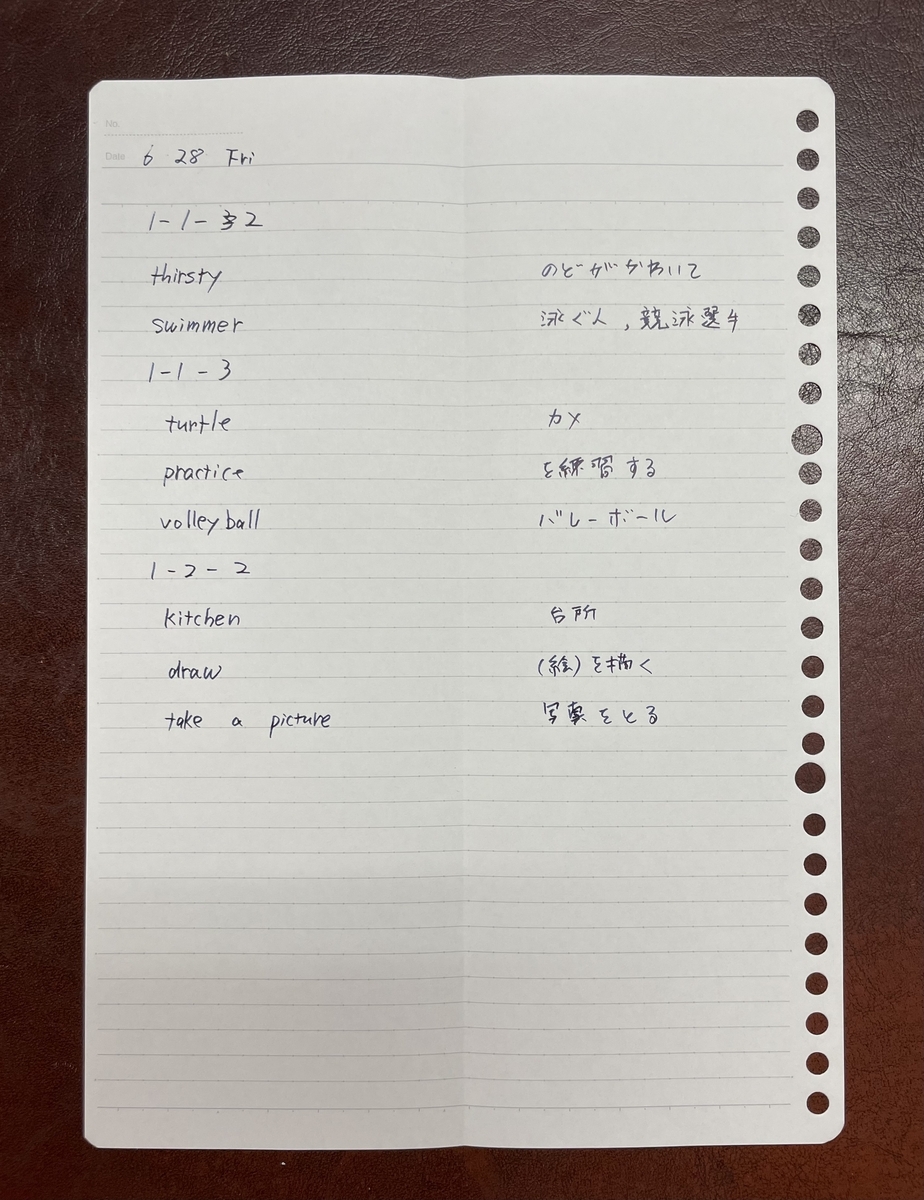 No.
Date 6 28 Fri
1-1-2
thirsty のどがかわいて
swimmer 泳ぐ人，競泳選手
1-1-3
turtle カメ
practice を練習する
volleyball バレーボール
1-2-2
kitchen 台所
draw (絵)を描く
take a picture 写真をとる